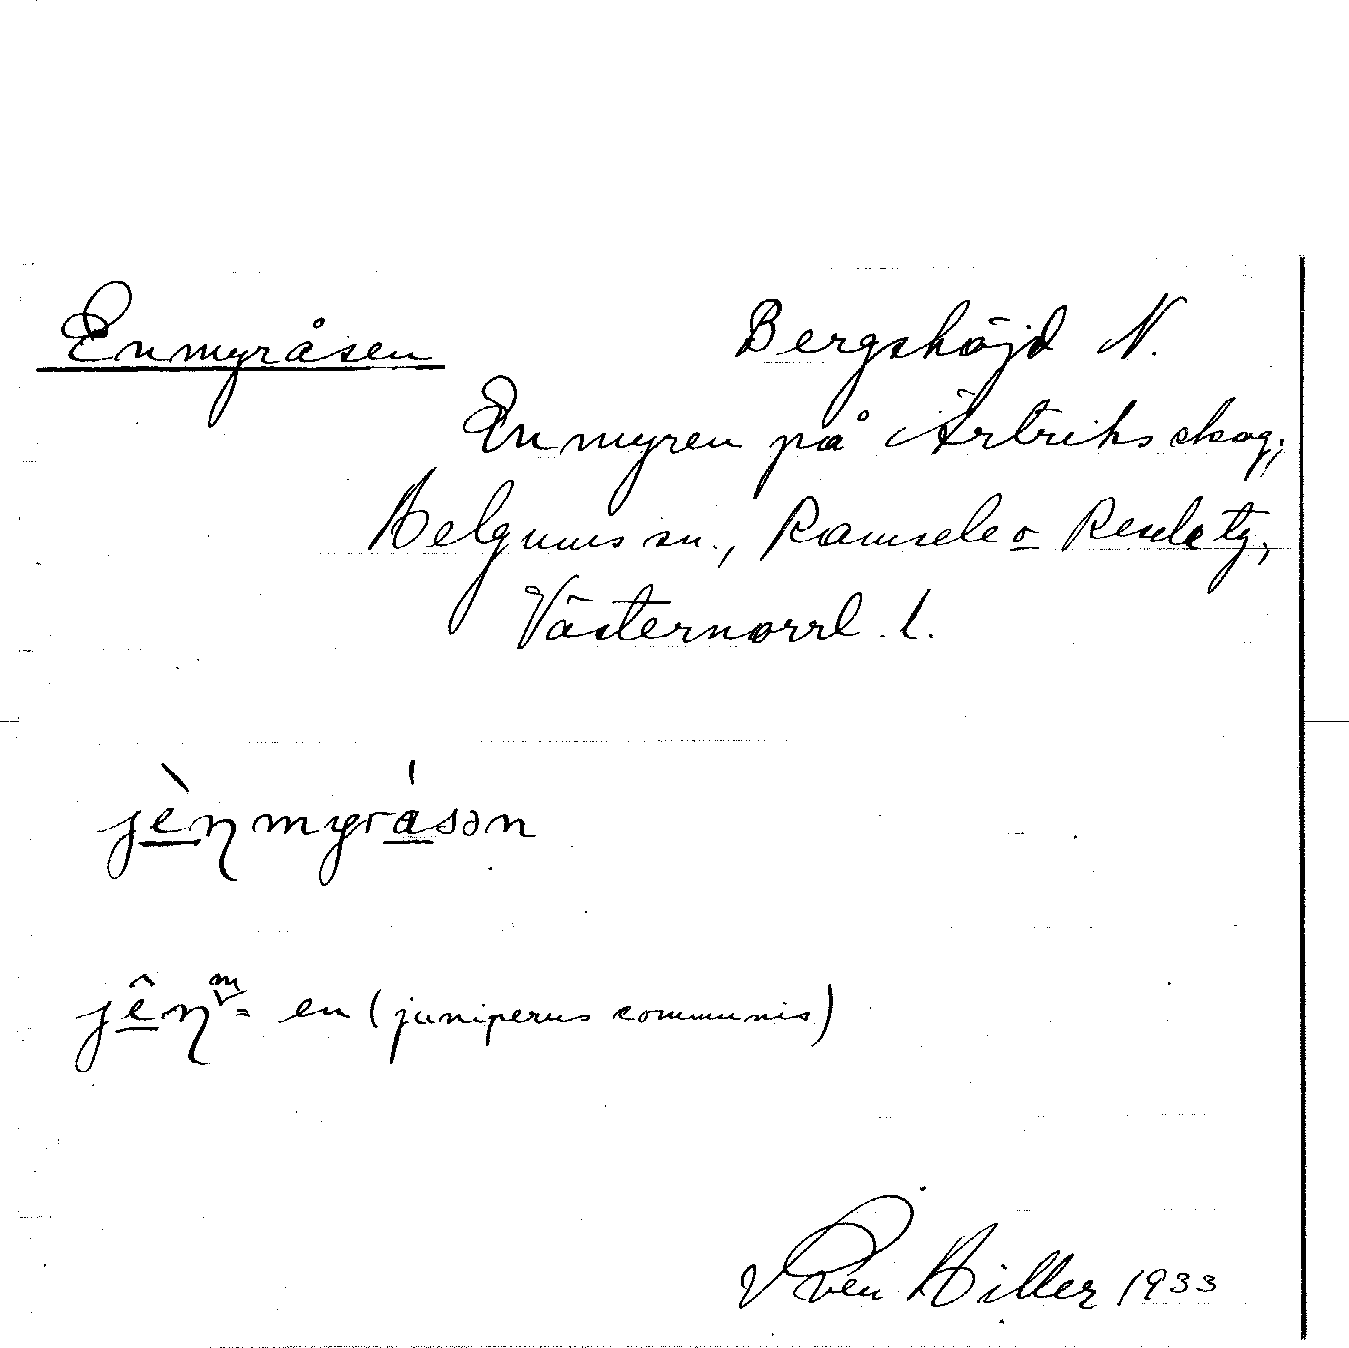 Enmyråsen Bergshöjd N.
Enmyren på Ärtriks skog,
Helgums sn., Ramsele o Resele tg,
Västernorrl. l.
jènmyråsən
jên m = en (juniperus communis)
Sven Hiller 1933